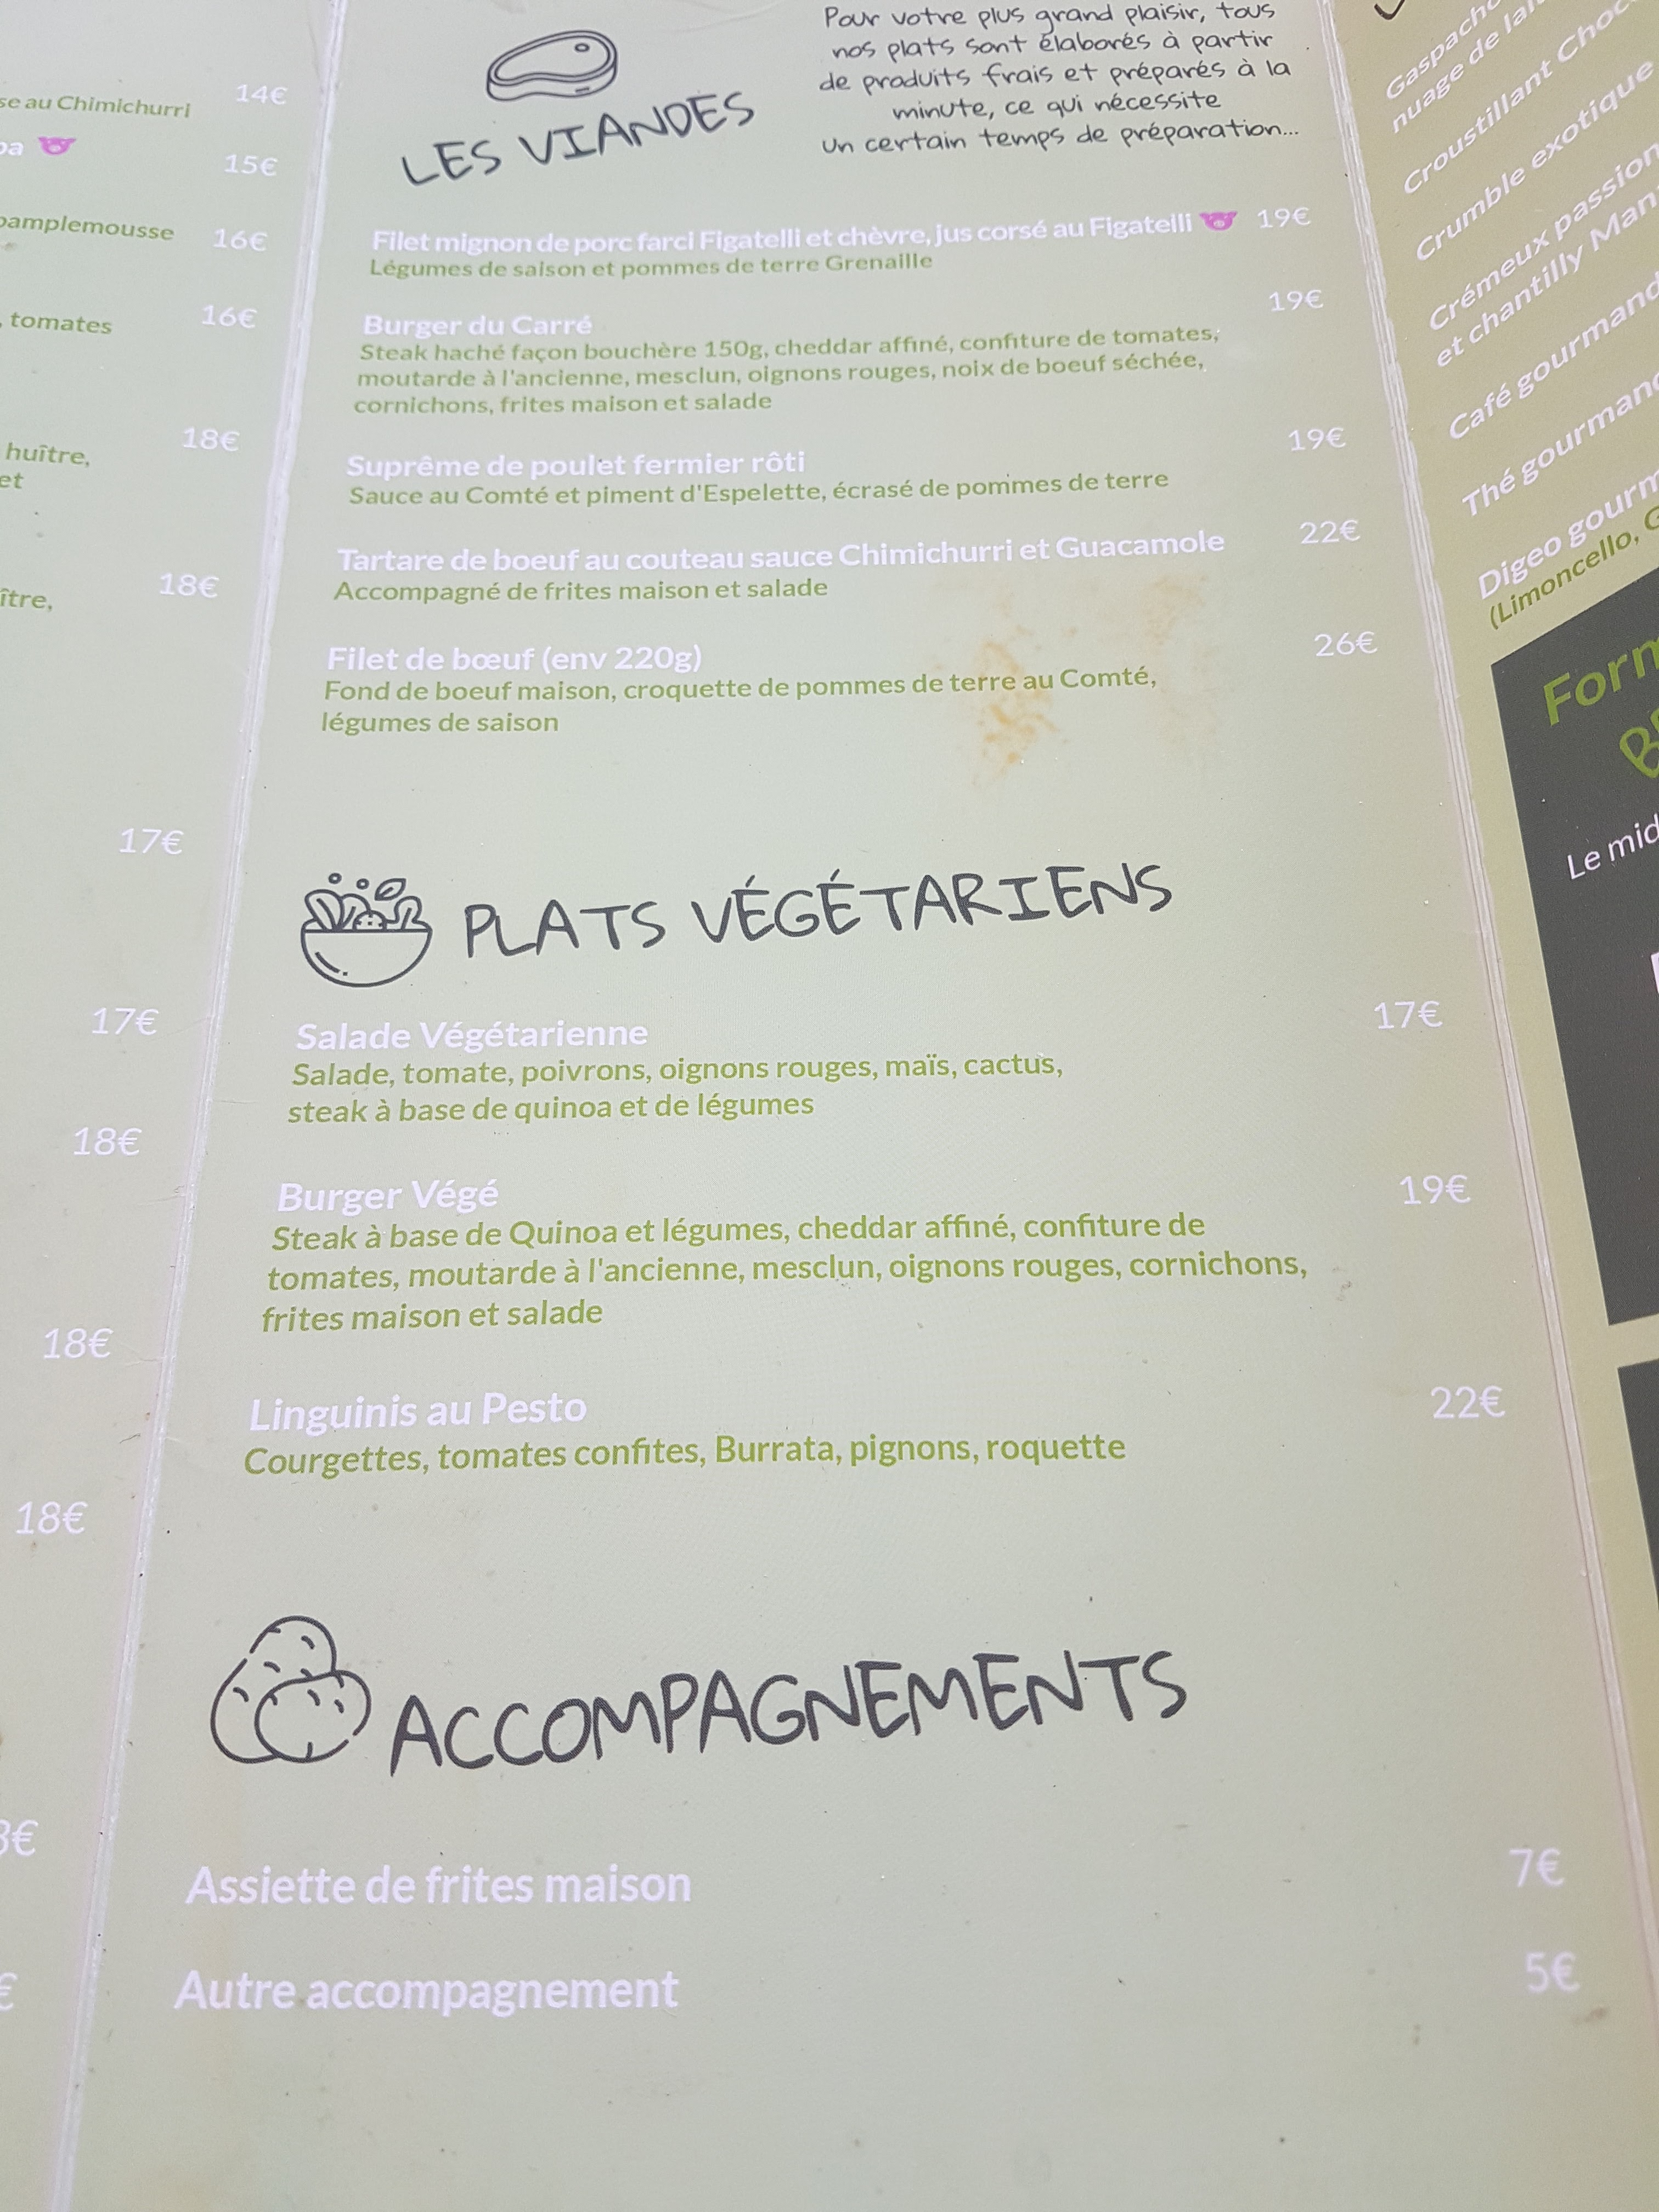 se au Chimichurri 14€
15€
pamplemousse 16€
, tomates 16€
18€
huître,
et
18€
ître,
17€
17€
18€
18€
18€
€
LES VIANDES
Pour votre plus grand plaisir, tous
nos plats sont élaborés à partir
de produits frais et préparés à la
minute, ce qui nécessite
un certain temps de préparation...
Filet mignon de porc farci Figatelli et chèvre, jus corsé au Figatelli 19€
Légumes de saison et pommes de terre Grenaille
Burger du Carré 19€
Steak haché façon bouchère 150g, cheddar affiné, confiture de tomates,
moutarde à l'ancienne, mesclun, oignons rouges, noix de boeuf séchée,
cornichons, frites maison et salade
Suprême de poulet fermier rôti 19€
Sauce au Comté et piment d'Espelette, écrasé de pommes de terre
Tartare de boeuf au couteau sauce Chimichurri et Guacamole 22€
Accompagné de frites maison et salade
Filet de bœuf (env 220g) 26€
Fond de boeuf maison, croquette de pommes de terre au Comté,
légumes de saison
PLATS VÉGÉTARIENS
Salade Végétarienne 17€
Salade, tomate, poivrons, oignons rouges, maïs, cactus,
steak à base de quinoa et de légumes
Burger Végé 19€
Steak à base de Quinoa et légumes, cheddar affiné, confiture de
tomates, moutarde à l'ancienne, mesclun, oignons rouges, cornichons,
frites maison et salade
Linguinis au Pesto 22€
Courgettes, tomates confites, Burrata, pignons, roquette
ACCOMPAGNEMENTS
Assiette de frites maison 7€
Autre accompagnement 5€
Gaspacho
nuage de lai
Croustillant Choc
Crumble exotique
Crémeux passion
et chantilly Man
Café gourmand
Thé gourmand
Digeo gourm
(Limoncello, G
Form
Le mid